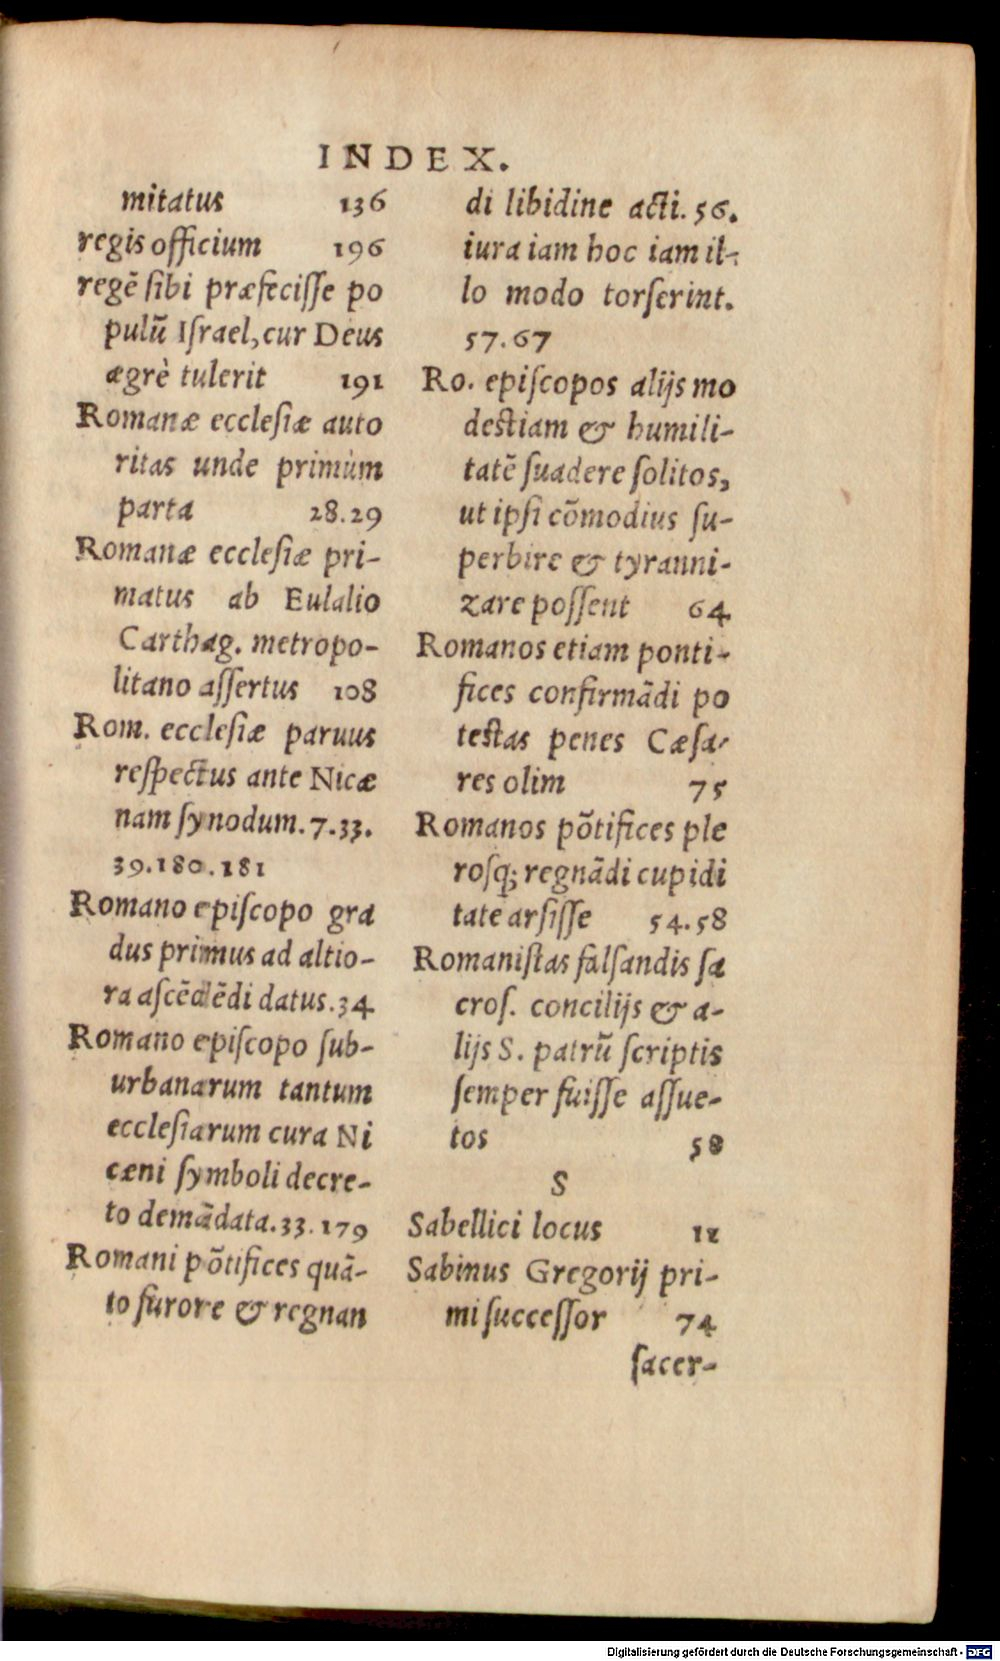 INDEX.
mitatus 136
regis officium 196
regē ſibi præfeciſſe po
pulū Iſrael, cur Deus
ægrè tulerit 191
Romanæ eccleſiæ auto
ritas unde primùm
parta 28.29
Romanæ eccleſiæ pri-
matus ab Eulalio
Carthag. metropo-
litano aſſertus 108
Rom. eccleſiæ paruus
reſpectus ante Nicæ
nam ſynodum. 7.33.
39.180.181
Romano epiſcopo gra
dus primus ad altio-
ra aſcēdēdi datus. 34
Romano epiſcopo ſub-
urbanarum tantum
eccleſiarum cura Ni
cæni ſymboli decre-
to demādata. 33. 179
Romani pōtifices quā-
to furore & regnan
di libidine acti. 56.
iura iam hoc iam il-
lo modo torſerint.
57.67
Ro. epiſcopos alijs mo
deſtiam & humili-
tatē ſuadere ſolitos,
ut ipſi cōmodius ſu-
perbire & tyranni-
zare poſſent 64
Romanos etiam ponti-
fices confirmādi po
teſtas penes Cæſa-
res olim 75
Romanos pōtifices ple
roſq; regnādi cupidi
tate arſiſſe 54.58
Romaniſtas falſandis ſa
croſ. concilijs & a-
lijs S. patrū ſcriptis
ſemper fuiſſe aſſue-
tos 58
S
Sabellici locus 12
Sabinus Gregorij pri-
mi ſucceſſor 74
ſacer-
Digitalisierung gefördert durch die Deutsche Forschungsgemeinschaft - DFG